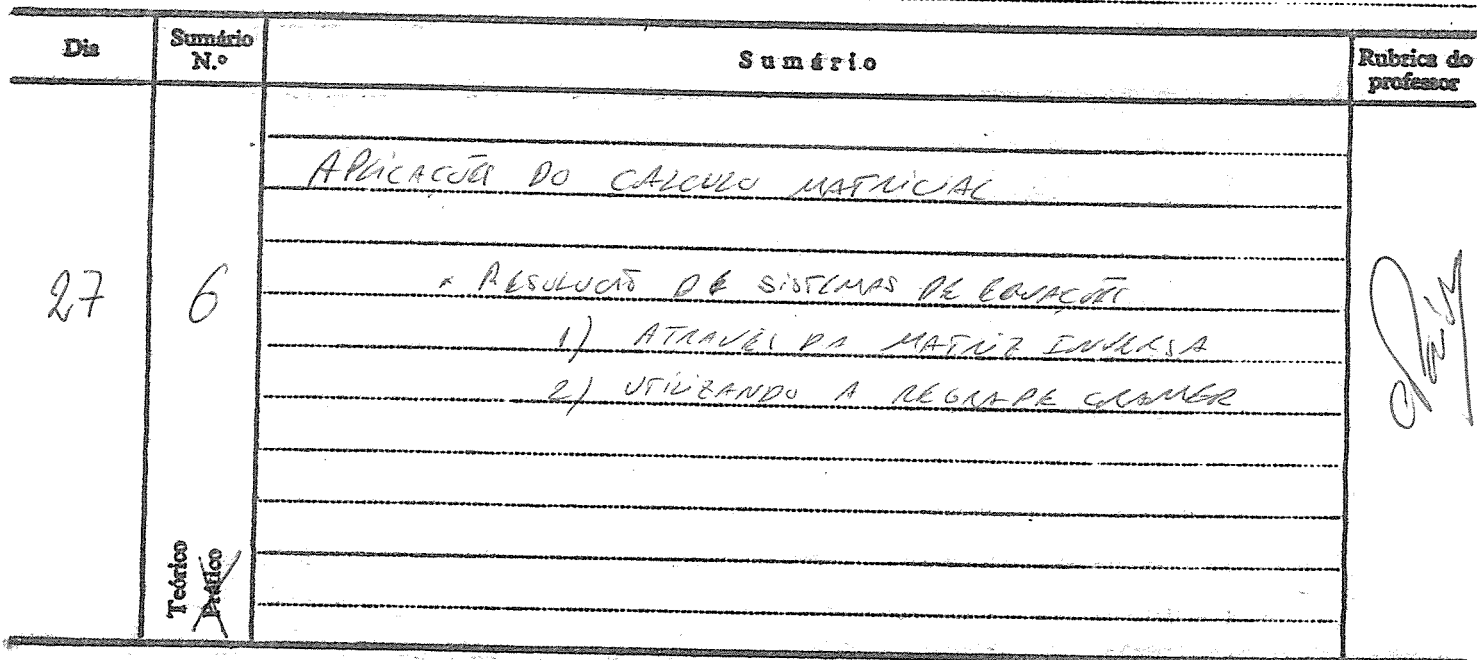 Dia
Sumário N.º
Sumário
Rubrica do professor
APLICAÇÕES DO CÁLCULO MATRICIAL
27
6
* RESOLUÇÃO DE SISTEMAS DE EQUAÇÕES
1) ATRAVÉS DA MATRIZ INVERSA
2) UTILIZANDO A REGRA DE CRAMER
Teórico
Prático